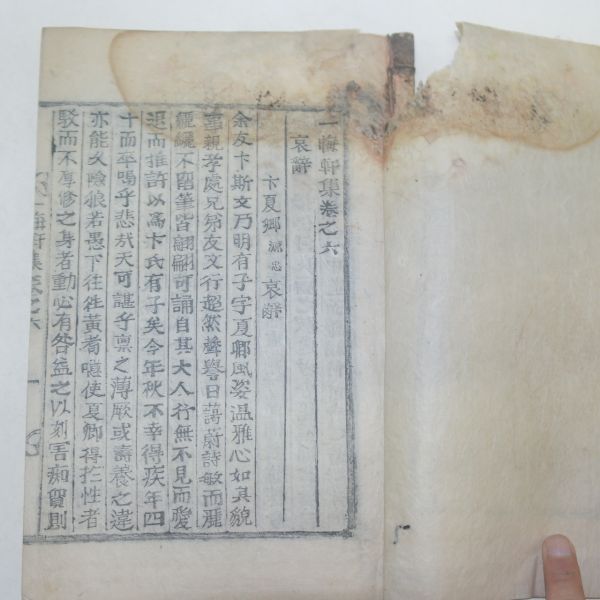 一悔軒集卷之六
哀辭
卞夏鄉 源忠 哀辭
余友卞斯文乃明有子字夏鄉風姿温雅心如其貌
事親孝處兄弟友文行超然聲譽日藹蔚詩敏而麗
纚纚不留筆皆翩翩可誦自其大人行無不見而愛
退而推許以爲卞氏有子矣今年秋不幸得疾年四
十而卒嗚乎悲哉天可諶乎禀之薄厥或壽養之違
亦能久噞狼若愚下往往黃耉 使夏鄉得 性者
駁而不厚修之身者動必有咎益之以刻害痴贸則
悔軒集卷之六
一